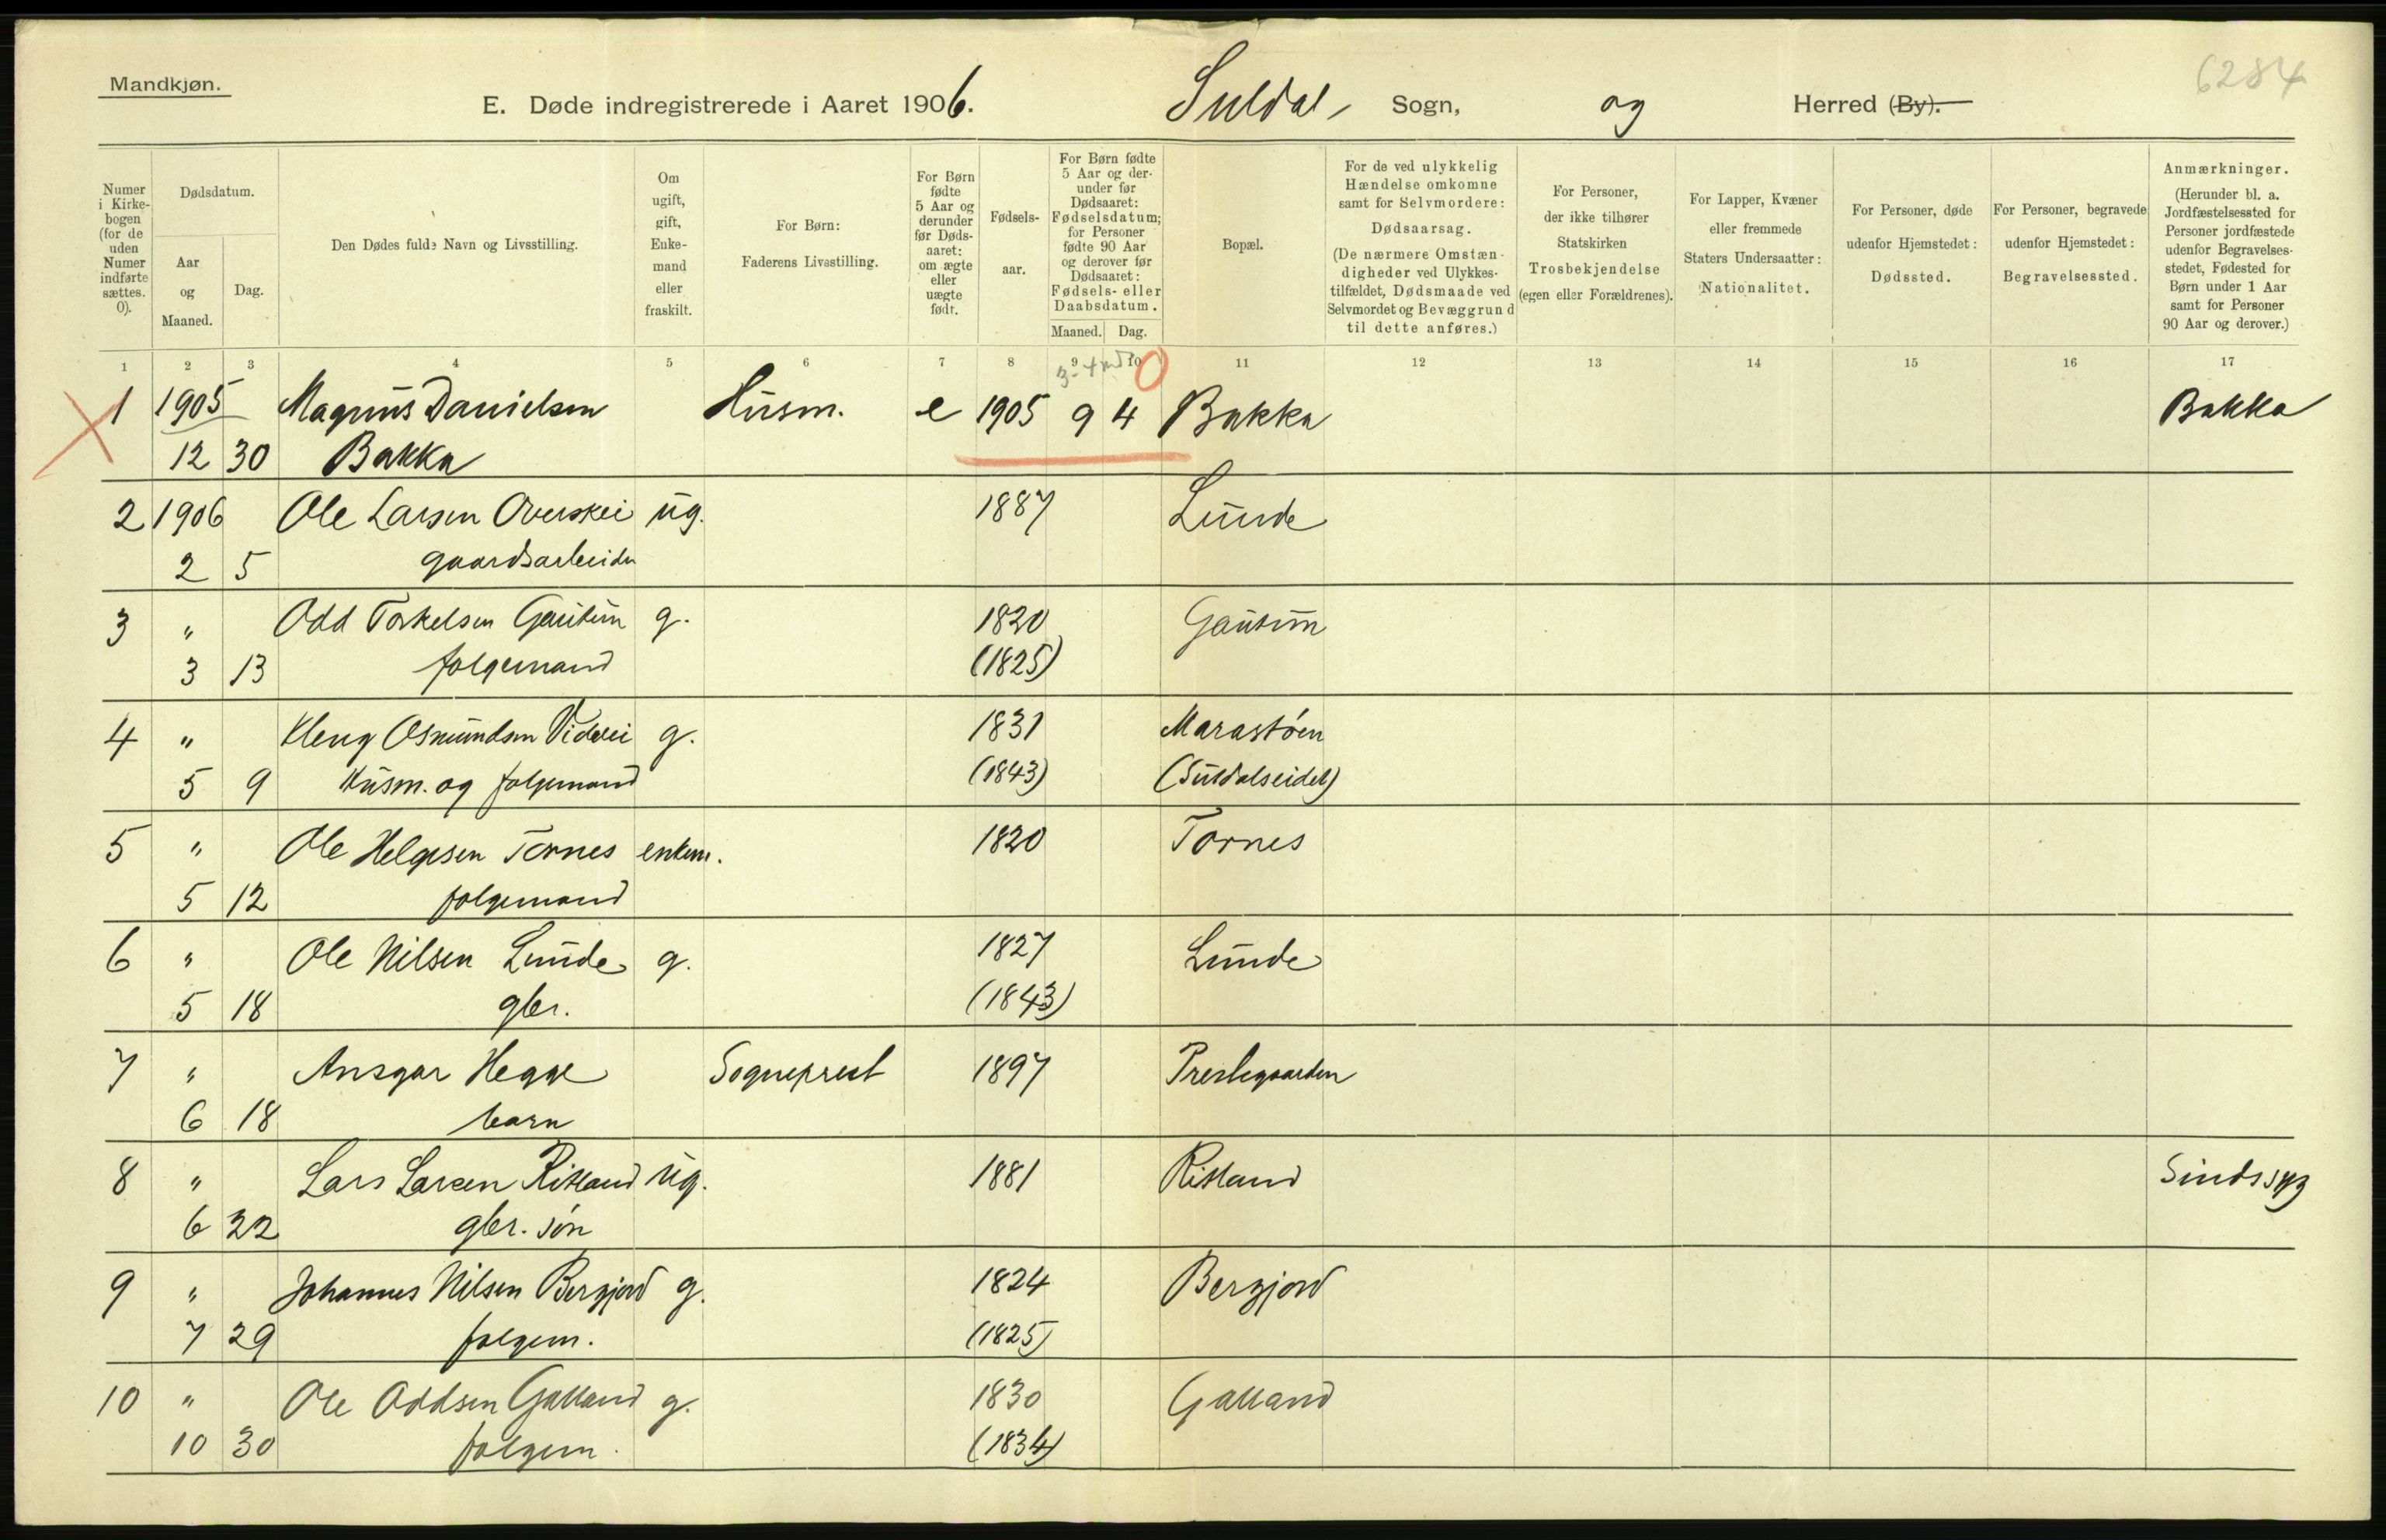 Mandkjøn.
6284
E. Døde indregistrerede i Aaret 1906. Suldal, Sogn, og Herred (By).
Numer i Kirke-bogen (for de uden Numer indførte sættes. 0).
Dødsdatum.
Aar og Maaned.
Dag.
Den Dødes fulde Navn og Livsstilling.
Om ugift, gift, Enke-mand eller fraskilt.
For Børn: Faderens Livsstilling.
For Børn fødte 5 Aar og derunder før Døds-aaret: om ægte eller uægte født.
Fødsels-aar.
For Børn fødte 5 Aar og der-under før Dødsaaret: Fødselsdatum; for Personer fødte 90 Aar og derover før Dødsaaret: Fødsels- eller Daabsdatum.
Maaned. Dag.
Bopæl.
For de ved ulykkelig Hændelse omkomne samt for Selvmordere: Dødsaarsag. (De nærmere Omstæn-digheder ved Ulykkes-tilfældet, Dødsmaade ved Selvmordet og Bevæggrund til dette anføres.)
For Personer, der ikke tilhører Statskirken Trosbekjendelse (egen eller Forældrenes).
For Lapper, Kvæner eller fremmede Staters Undersaatter: Nationalitet.
For Personer, døde udenfor Hjemstedet: Dødssted.
For Personer, begravede udenfor Hjemstedet: Begravelsessted.
Anmærkninger. (Herunder bl. a. Jordfæstelsessted for Personer jordfæstede udenfor Begravelses-stedet, Fødested for Børn under 1 Aar samt for Personer 90 Aar og derover.)
1 2 3 4 5 6 7 8 9 10 11 12 13 14 15 16 17
1 1905 Magnus Danielsen Husm. e 1905 9 4 Bakka Bakka
12 30 Bakka
2 1906 Ole Larsen Overskei ug. 1887 Lunde
2 5 gaardsarbeider
3 " Odd Torkelsen Gautun g. 1820 Gautun
3 13 folgemand
4 " Kleng Osmundsen Vidvei g. 1831 Marastøen
5 9 Husm. og folgemand (1843) (Suldalseidet)
5 " Ole Helgesen Tornes enkem. 1820 Tornes
5 12 folgemand
6 " Ole Nilsen Lunde g. 1827 Lunde
5 18 gbr. (1843)
7 " Ansgar Hegge Sogneprest 1897 Prestegaarden
6 18 barn
8 " Lars Larsen Ritland ug. 1881 Ritland Sindssyg
6 22 gbr. søn
9 " Johannes Nilsen Bergjord g. 1824 Bergjord
7 29 folgem. (1825)
10 " Ole Oddsen Galland g. 1830 Galland
10 30 folgem. (1834)